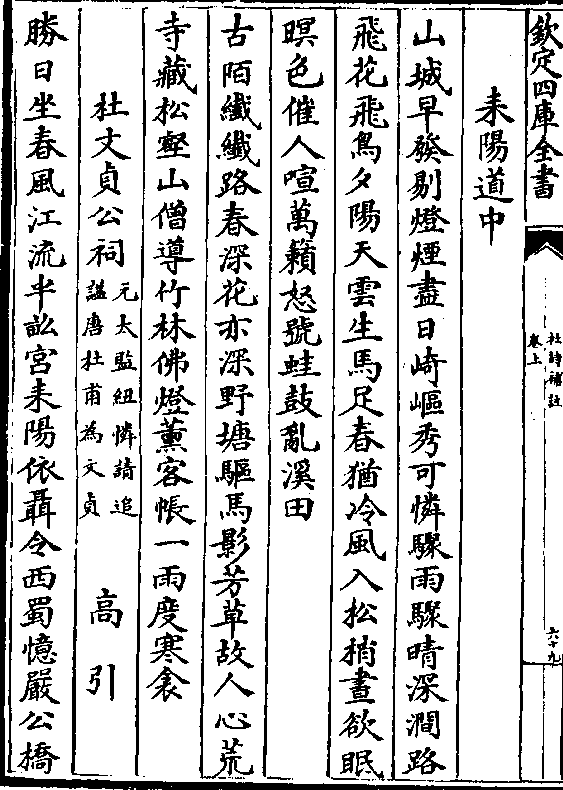 欽定四庫全書
杜詩補註
卷上
六十九
耒陽道中
山城早發剔燈煙盡日崎嶇秀可憐驟雨驟晴深澗路
飛花飛鳥夕陽天雲生馬足春猶冷風入松梢晝欲眠
暝色催人喧萬籟怒號蛙鼓亂溪田
古陌纖纖路春深花亦深野塘驅馬影芳草故人心荒
寺藏松壑山僧導竹林佛燈薰客帳一雨度寒衾
杜文貞公祠
元太監紐憐請追
諡唐杜甫為文貞
高引
勝日坐春風江流半訟宮耒陽依聶令西蜀憶嚴公橋